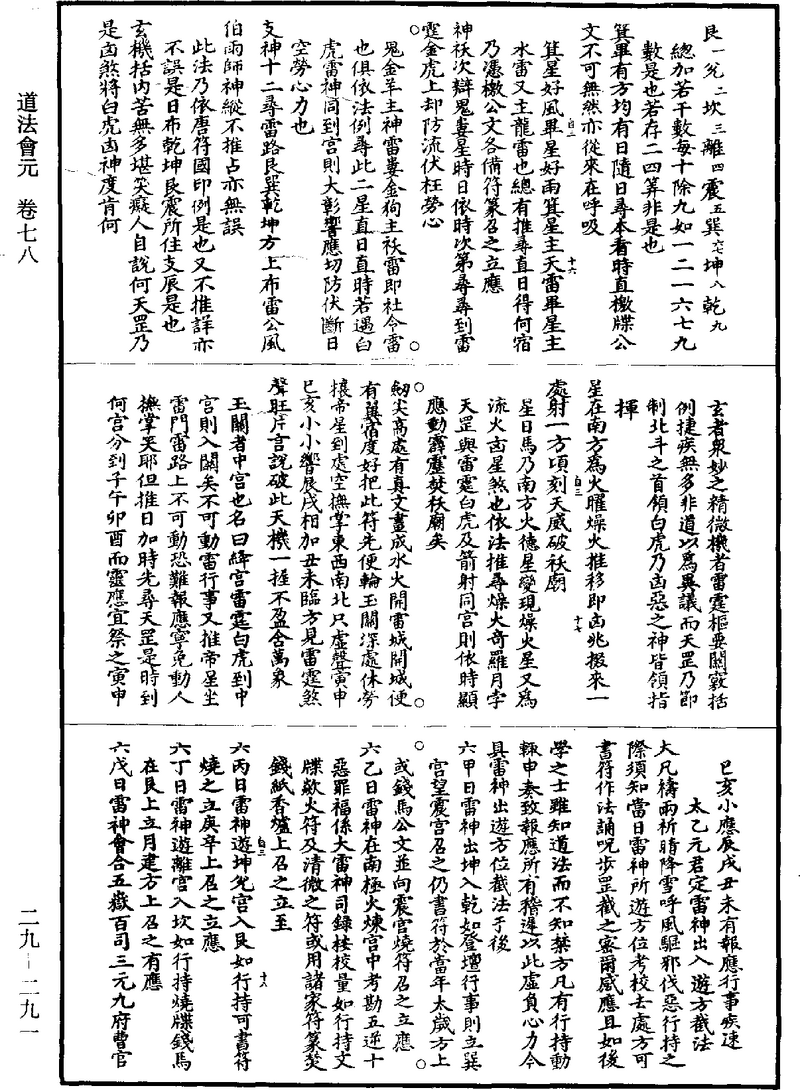 道法會元　卷七八
二九—二九一
艮一兌二坎三離四震五巽六七坤八乾九
總加若干數每十除九如一二一六七九
數是也若存二四筭非是也
箕畢有方均有日隨日尋本看時直檄牒公
文不可無然亦從來在呼吸
箕星好風畢星好雨箕星主天雷畢星主
水雷又主龍雷也總有推尋直日得何宿
乃憑檄公文各備符篆召之立應
神祅次辯鬼婁星時日依時次第尋尋到雷
霆金虎上却防流伏枉勞心
鬼金羊主神雷婁金狗主祅雷即社令雷
也俱依法例尋此二星直日直時若遇白
虎雷神同到宮則大彰響應切防伏斷日
空勞心力也
支神十二尋雷路艮巽乾坤方上布雷公風
伯雨師神縱不推占亦無誤
此法乃依唐符國印例是也又不推詳亦
不誤是日布乾坤艮震所住支辰是也
玄機括内苦無多堪笑癡人自說何天罡乃
是凾煞將白虎凾神度肯何
玄者衆妙之精微機者雷霆樞要關竅括
例捷疾無多非道以爲異議而天罡乃節
制北斗之首領白虎乃凾惡之神皆領指
揮
星在南方爲火曜燥火推移即凾兆撥來一
處射一方頃刻天威破祅廟
星日馬乃南方火德星變現燥火星又爲
流火凾星煞也依法推尋燥火奇羅月孛
天罡與雷霆白虎及箭射同宮則依時顯
應動霹靂焚祅廟矣
劒尖高處有真文畫成水火開雷城開城便
有萬宿度好把此符先使輪玉關深處休勞
攘帝星到處空撫掌東西南北只虛聲寅申
巳亥小小響辰戌相加丑未臨方見雷霆煞
聲旺片言說破此天機一握不盈含萬象
玉關者中宮也名曰絳宮雷霆白虎到中
宮則入關矣不可動雷行事又推帝星坐
雷門雷路上不可動恐難報應寧免動人
撫掌笑耶但推日加時先尋天罡是時到
何宮分到子午卯酉而靈應宜祭之寅申
巳亥小應辰戌丑未有報應行事疾速
太乙元君定雷神出入遊方截法
大凡禱雨祈晴降雪呼風驅邪伐惡行持之
際須知當日雷神所遊方位考校去處方可
書符作法誦呪步罡截之密爾感應且如後
學之士雖知道法而不知棼方凡有行持動
輒申奏致報應所有稽遲以此虛負心力今
具雷神出遊方位截法于後
六甲日雷神出坤入乾如登壇行事則立巽
宮望震宮召之仍書符於當年太歲方上
或錢馬公文並向震宮燒符召之立應
六乙日雷神在南極火煉宮中考勘五逆十
惡罪福係大雷神司録按校量如行持文
牒歘火符及清微之符或用諸家符篆焚
錢紙香爐上召之立至
六丙日雷神遊坤兌宮入艮如行持可書符
燒之立庚辛上召之立應
六丁日雷神遊離宮入坎如行持燒牒錢馬
在艮上立月建方上召之有應
六戊日雷神會合五嶽百司三元九府曹官